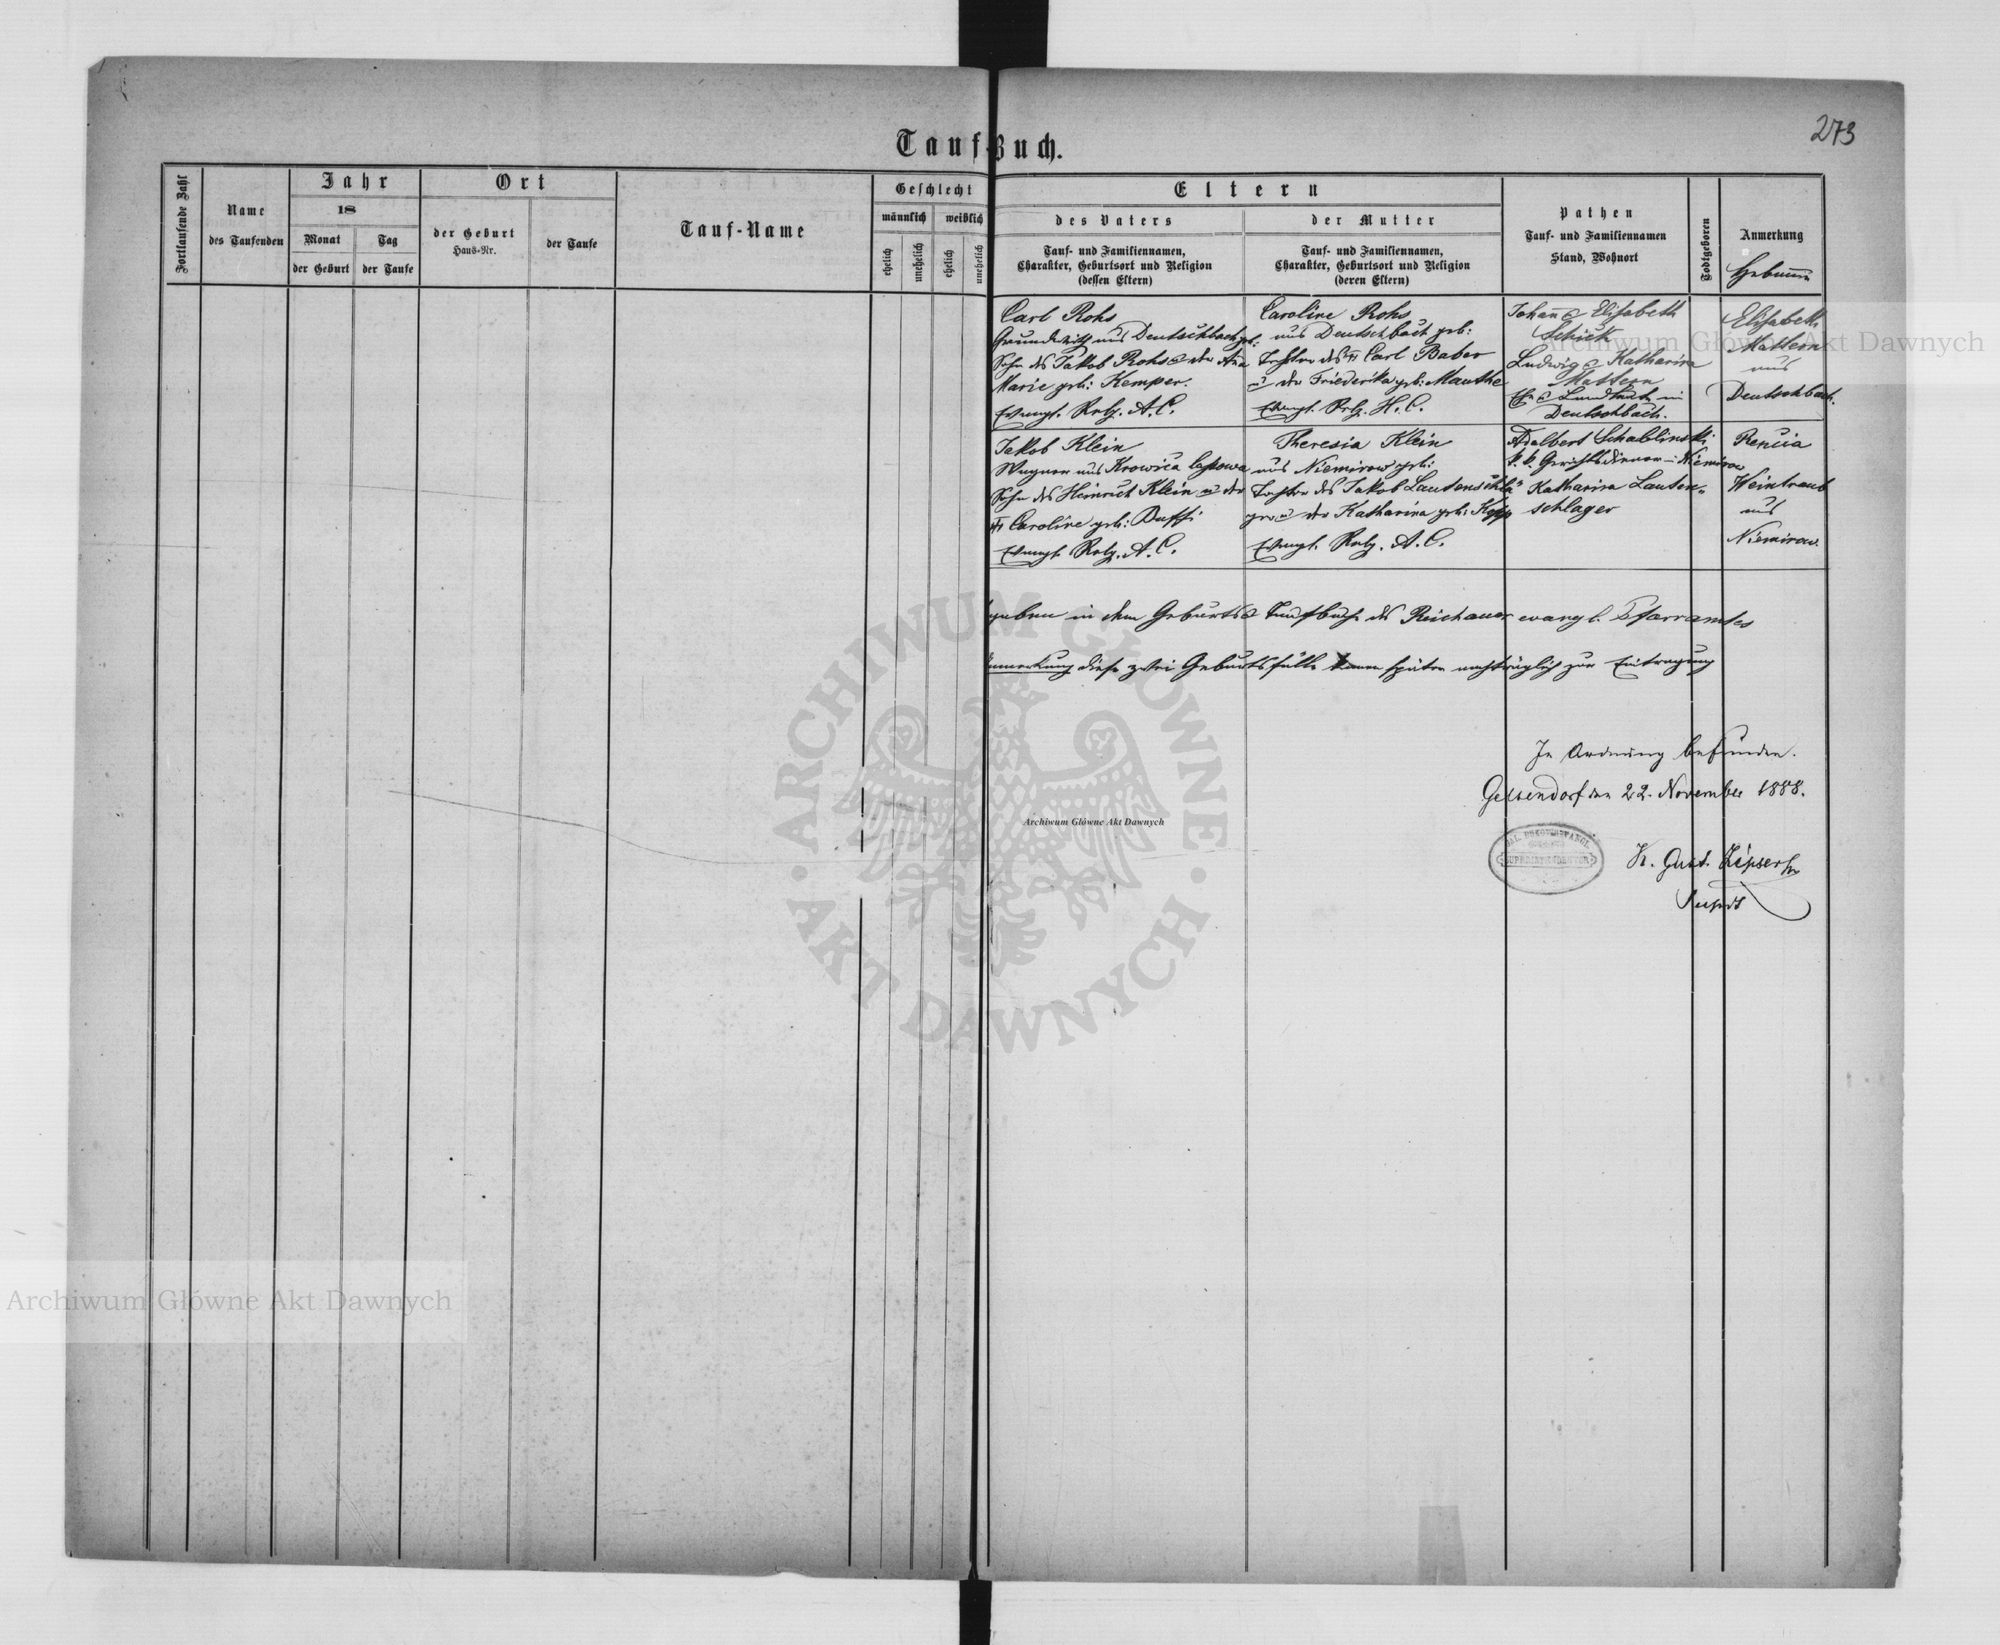 273
Tauf-Buch.
Fortlaufende Zahl
Name
des Taufenden
Jahr
18
Monat
der Geburt
Tag
der Taufe
Ort
der Geburt
Haus-Nr.
der Taufe
Tauf-Name
Geschlecht
männlich
weiblich
ehelich
unehelich
ehelich
unehelich
Eltern
des Vaters
Tauf- und Familiennamen,
Charakter, Geburtsort und Religion
(dessen Eltern)
der Mutter
Tauf- und Familiennamen,
Charakter, Geburtsort und Religion
(deren Eltern)
Pathen
Tauf- und Familiennamen
Stand, Wohnort
Todtgeboren
Anmerkung
Hebamme
Carl Rohs
Grundwirth aus Deutschbach geb:
Sohn des Jakob Rohs u der Aña
Marie geb: Kemper.
Evangl. Relg. A. C.
Caroline Rohs
aus Deutschbach geb:
Tochter des Carl Baber
u der Friederika geb: Mauthe
Evangl. Relg. H. C.
Johañ u Elisabeth
Schick
Ludwig u Katharina
Mattern
in
Deutschbach.
Elisabeth
Mattern
aus
Deutschbach.
Jakob Klein
Wagner aus Krowica
Sohn des Heinrich Klein u der
Caroline geb:
Evangl. Relg. A. C.
Theresia Klein
aus Niemirow geb:
Tochter des Jakob Lautenschlä=
ger u der Katharina geb: Kopp
Evangl. Relg. A. C.
Adalbert Schablinski
k. k. Gerichtsdiener in Niemirow
Katharina Lauten=
schlager
Weintraub
aus
Niemirow.
geben in dem Geburts u Taufbuche des Reichauer evangl. Pfarramtes
Anmerkung diese zwei Geburtsfälle kamen später nachträglich zur Eintragung
In Ordnung befunden.
Gelsendorf den 22. November 1888.
K. Gust. Zipser
Archiwum Główne Akt Dawnych
ARCHIWUM GŁÓWNE AKT DAWNYCH
Archiwum Główne Akt Dawnych
Archiwum Główne Akt Dawnych